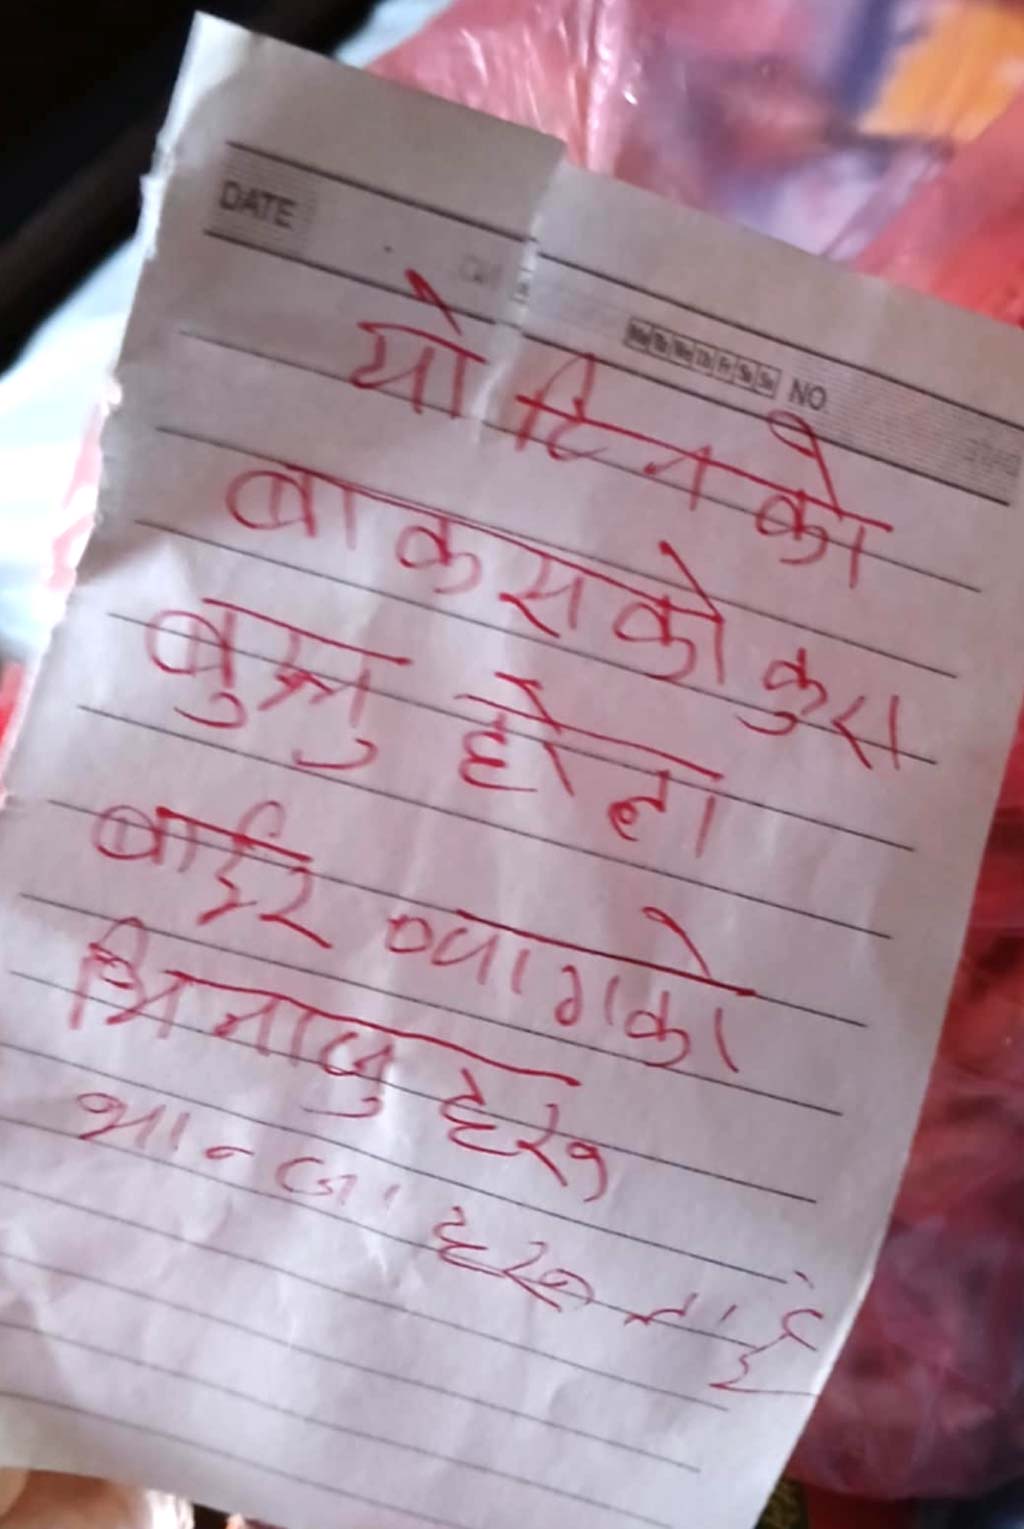 DATE
Mo Tu We Th Fr Sa Su NO
यो टिनको
बाकसको कुरा
बुझ्नु होला
बाईर ब्यागको
भिनाजु हरु
भान्जा हरु लाई